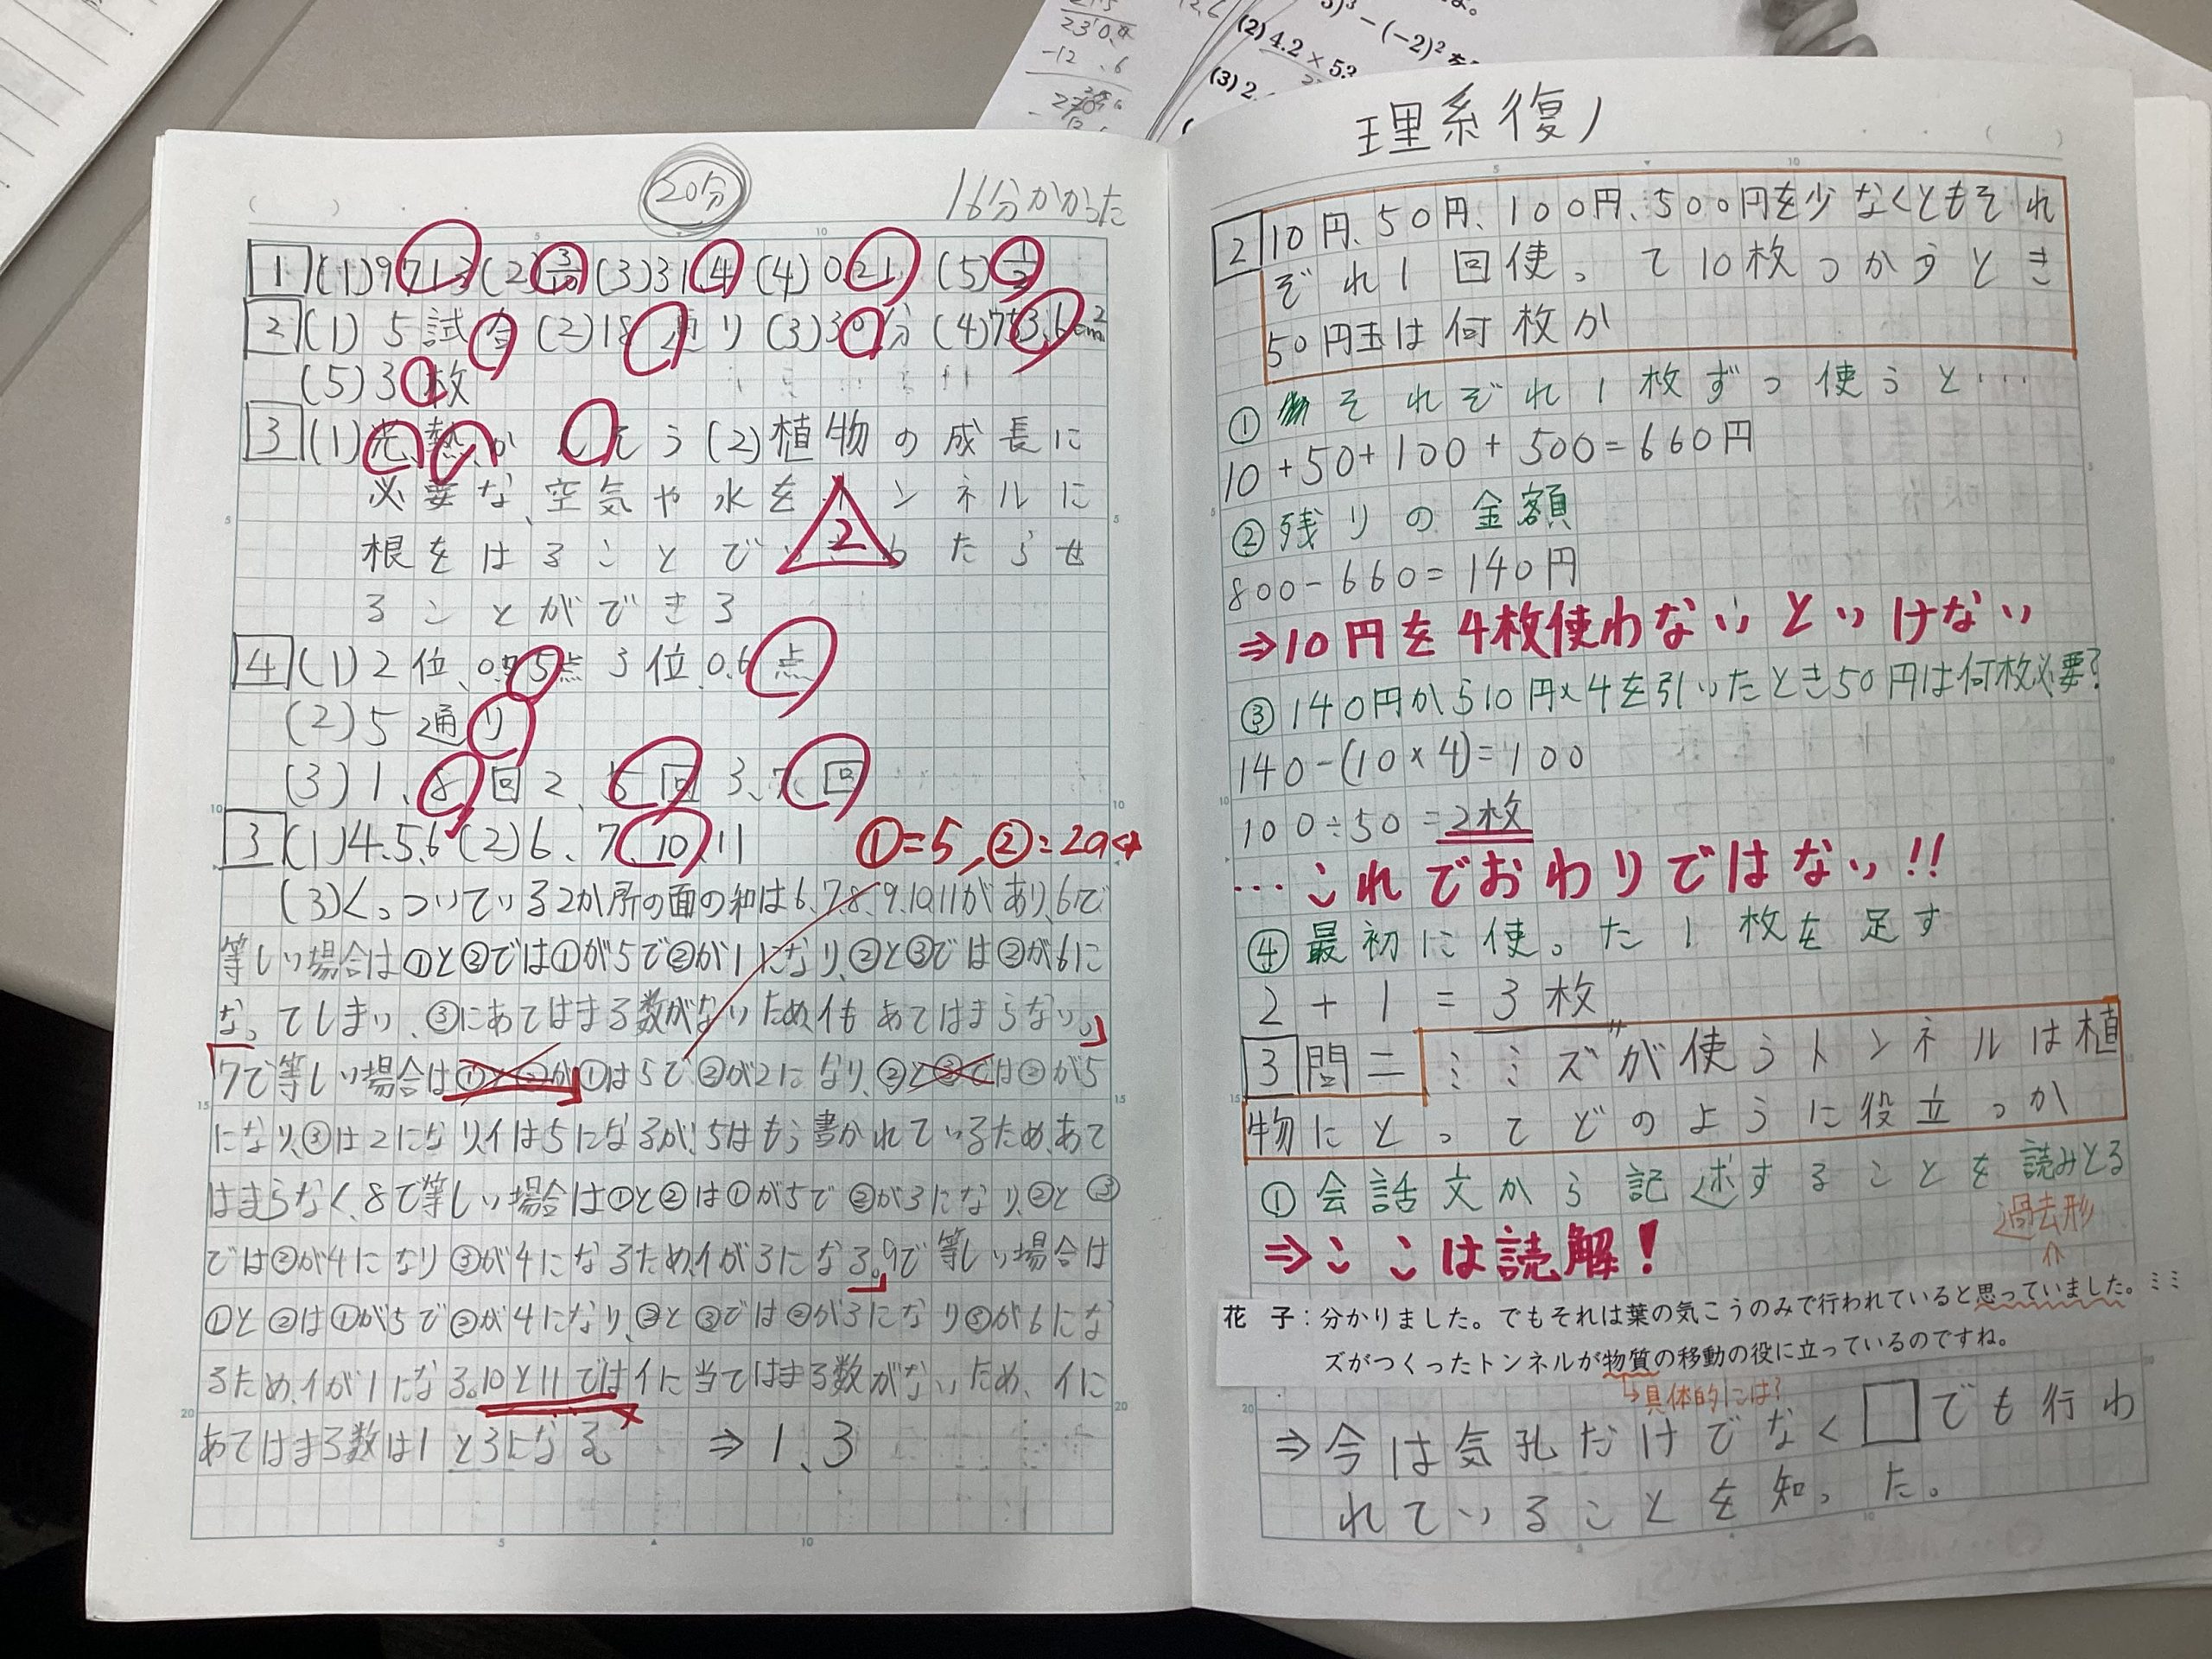 20分
16分かかった
1 (1)9713 (2)3/10 (3)31.4 (4)0.21 (5)1/2
2 (1)5試合 (2)18通り (3)30分 (4)753.6cm²
(5)30枚
3 (1)光、熱、か (2)植物の成長に
必要な、空気や水をトンネルに
根をはることで たらせ
2
ることができる
4 (1)2位、0.75点 3位、0.6点
(2)5通り
(3)1、8回 2、5回 3、7回
3 (1)4、5、6 (2)6、7、10、11
①=5、②=2のとき
(3)くっついている2か所の面の和は6、7、8、9、10、11があり、6で
等しい場合は①と②では①が5で②が1になり、②と③では②が6に
なってしまい、③にあてはまる数がないため、イもあてはまらない。
7で等しい場合は①と②が①は5で②が2になり、②と③では②が5
になり、③は2になりイは5になるが、5はもう書かれているため、あて
はまらなく、8で等しい場合は①と②は①が5で②が3になり、②と③
では②が4になり③が4になるため、イが3になる。9で等しい場合は
①と②は①が5で②が4になり、②と③では②が3になり③が6にな
るため、イが1になる。10と11ではイに当てはまる数がないため、イに
あてはまる数は1と3になる。 ⇒1、3
理系復ノ
2 10円、50円、100円、500円を少なくともそれ
ぞれ1回使って10枚つかうとき
50円玉は何枚か
①それぞれ1枚ずつ使うと…
10+50+100+500=660円
②残りの金額
800-660=140円
⇒10円を4枚使わないといけない
③140円から10円×4を引いたとき50円は何枚必要?
140-(10×4)=100
100÷50=2枚
…これでおわりではない!!
④最初に使った1枚を足す
2+1=3枚
3 問二 ミミズが使うトンネルは植
物にとってどのように役立つか
①会話文から記述することを読みとる
過去形
⇒ここは読解!
花 子:分かりました。でもそれは葉の気こうのみで行われていると思っていました。ミミ
ズがつくったトンネルが物質の移動の役に立っているのですね。
↳具体的には?
⇒今は気孔だけでなく□でも行わ
れていることを知った。
(2)4.2×5.
(3)2.